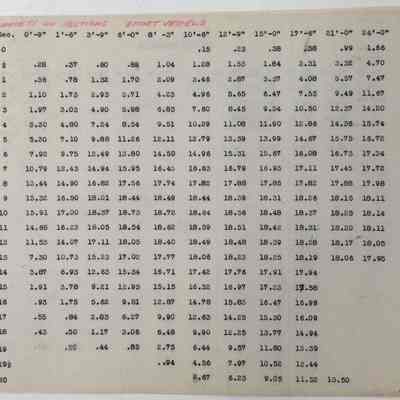 SECTIONS SHORT VESSELS
Sec. 0'-9" 1'-6" 3'-9" 6'-0" 8'-3" 10'-6" 12'-9" 15'-0" 17'-6" 21'-0" 24'-0"
0 .15 .23 .38 .99 1.66
2 .28 .37 .60 .88 1.04 1.28 1.53 1.84 2.31 3.32 4.70
1 .56 .78 1.32 1.70 2.09 2.46 2.87 3.37 4.08 5.57 7.47
2 1.10 1.73 2.93 3.71 4.23 4.96 5.65 6.47 7.53 9.49 11.67
3 1.97 3.03 4.90 5.98 6.83 7.80 8.45 9.34 10.50 12.37 14.20
4 3.30 4.80 7.24 8.54 9.51 10.29 11.08 11.90 12.86 14.36 15.74
5 5.30 7.10 9.88 11.26 12.11 12.79 13.39 13.99 14.67 15.75 16.72
6 7.92 9.75 12.49 13.80 14.50 14.96 15.31 15.67 16.08 16.73 17.34
7 10.79 12.43 14.94 15.95 16.43 16.63 16.79 16.93 17.11 17.45 17.72
8 13.44 14.90 16.82 17.56 17.74 17.82 17.88 17.85 17.82 17.88 17.98
9 15.32 16.50 18.01 18.44 18.49 18.44 18.39 18.31 18.26 18.16 18.11
10 15.91 17.00 18.37 18.73 18.72 18.64 18.56 18.48 18.37 18.25 18.14
11 14.88 16.23 18.05 18.54 18.62 18.59 18.51 18.42 18.31 18.20 18.11
12 11.53 14.07 17.11 18.05 18.40 18.49 18.48 18.39 18.28 18.17 18.05
13 7.30 10.73 15.23 17.02 17.77 18.06 18.23 18.25 18.19 18.06 17.95
14 3.87 6.93 12.63 15.34 16.71 17.42 17.76 17.91 17.94
15 1.91 3.78 9.21 12.93 15.15 16.32 16.97 17.33 17.58
16 .93 1.75 5.62 9.81 12.87 14.78 15.83 16.47 16.99
17 .55 .84 2.83 6.27 9.90 12.63 14.25 15.30 16.09
18 .43 .50 1.17 3.06 6.48 9.90 12.25 13.77 14.94
19 .44 .83 2.75 6.44 9.57 11.80 13.39
19½ .94 4.56 7.97 10.52 12.44
20 2.67 6.23 9.05 11.52 15.50